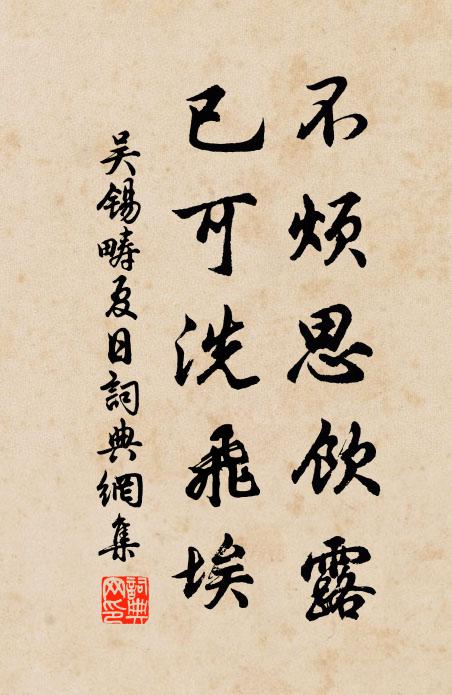 不烦思饮露
已可洗飛埃
吴锡畴夏日詞典網集
詞典
网印